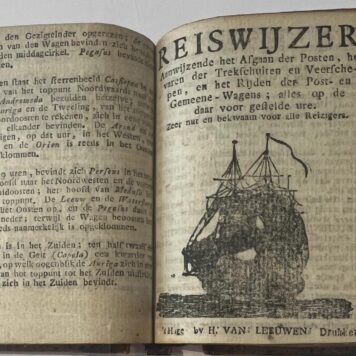 den Gezigteinder opgerezen; de
van den Wagen bevind
middagcirkel. Pegasus bevind
staat het sterrenbeeld Cassiopea
van het toppunt Noordwaards
Andromeda
en de Tweeling, van het
oosten te rekenen, zich in een
elkander bevinden. De Arend
op dat uur, in het Westen,
en de Orion is reeds in het
klommen.
uren, bevindt zich Perseus in het
naar het Noordwesten en de
middooster; het hoofd van Medusa
toppunt. De Leeuw en de
het Oosten op, en de Pegasus
der; terwyl de Wagen
merkelyk naderhand is opgeklommen.
is in het Zuiden: ten half
de Geit (Capela) een
op welk oogenblik de Auriga zich
van het toppunt tot het Zuiden
zich in het Zuiden bevindt.
REISWIJZER
Aanwijzende het Afgaan der Posten, het
varen der Trekschuiten en Veersche-
pen, en het Rijden der Post- en
Gemeene-Wagens; alles op de
daar voor gestelde ure.
Zeer nut en bekwaam voor alle Reizigers.
's Hage by H. VAN LEEUWEN: Drukker